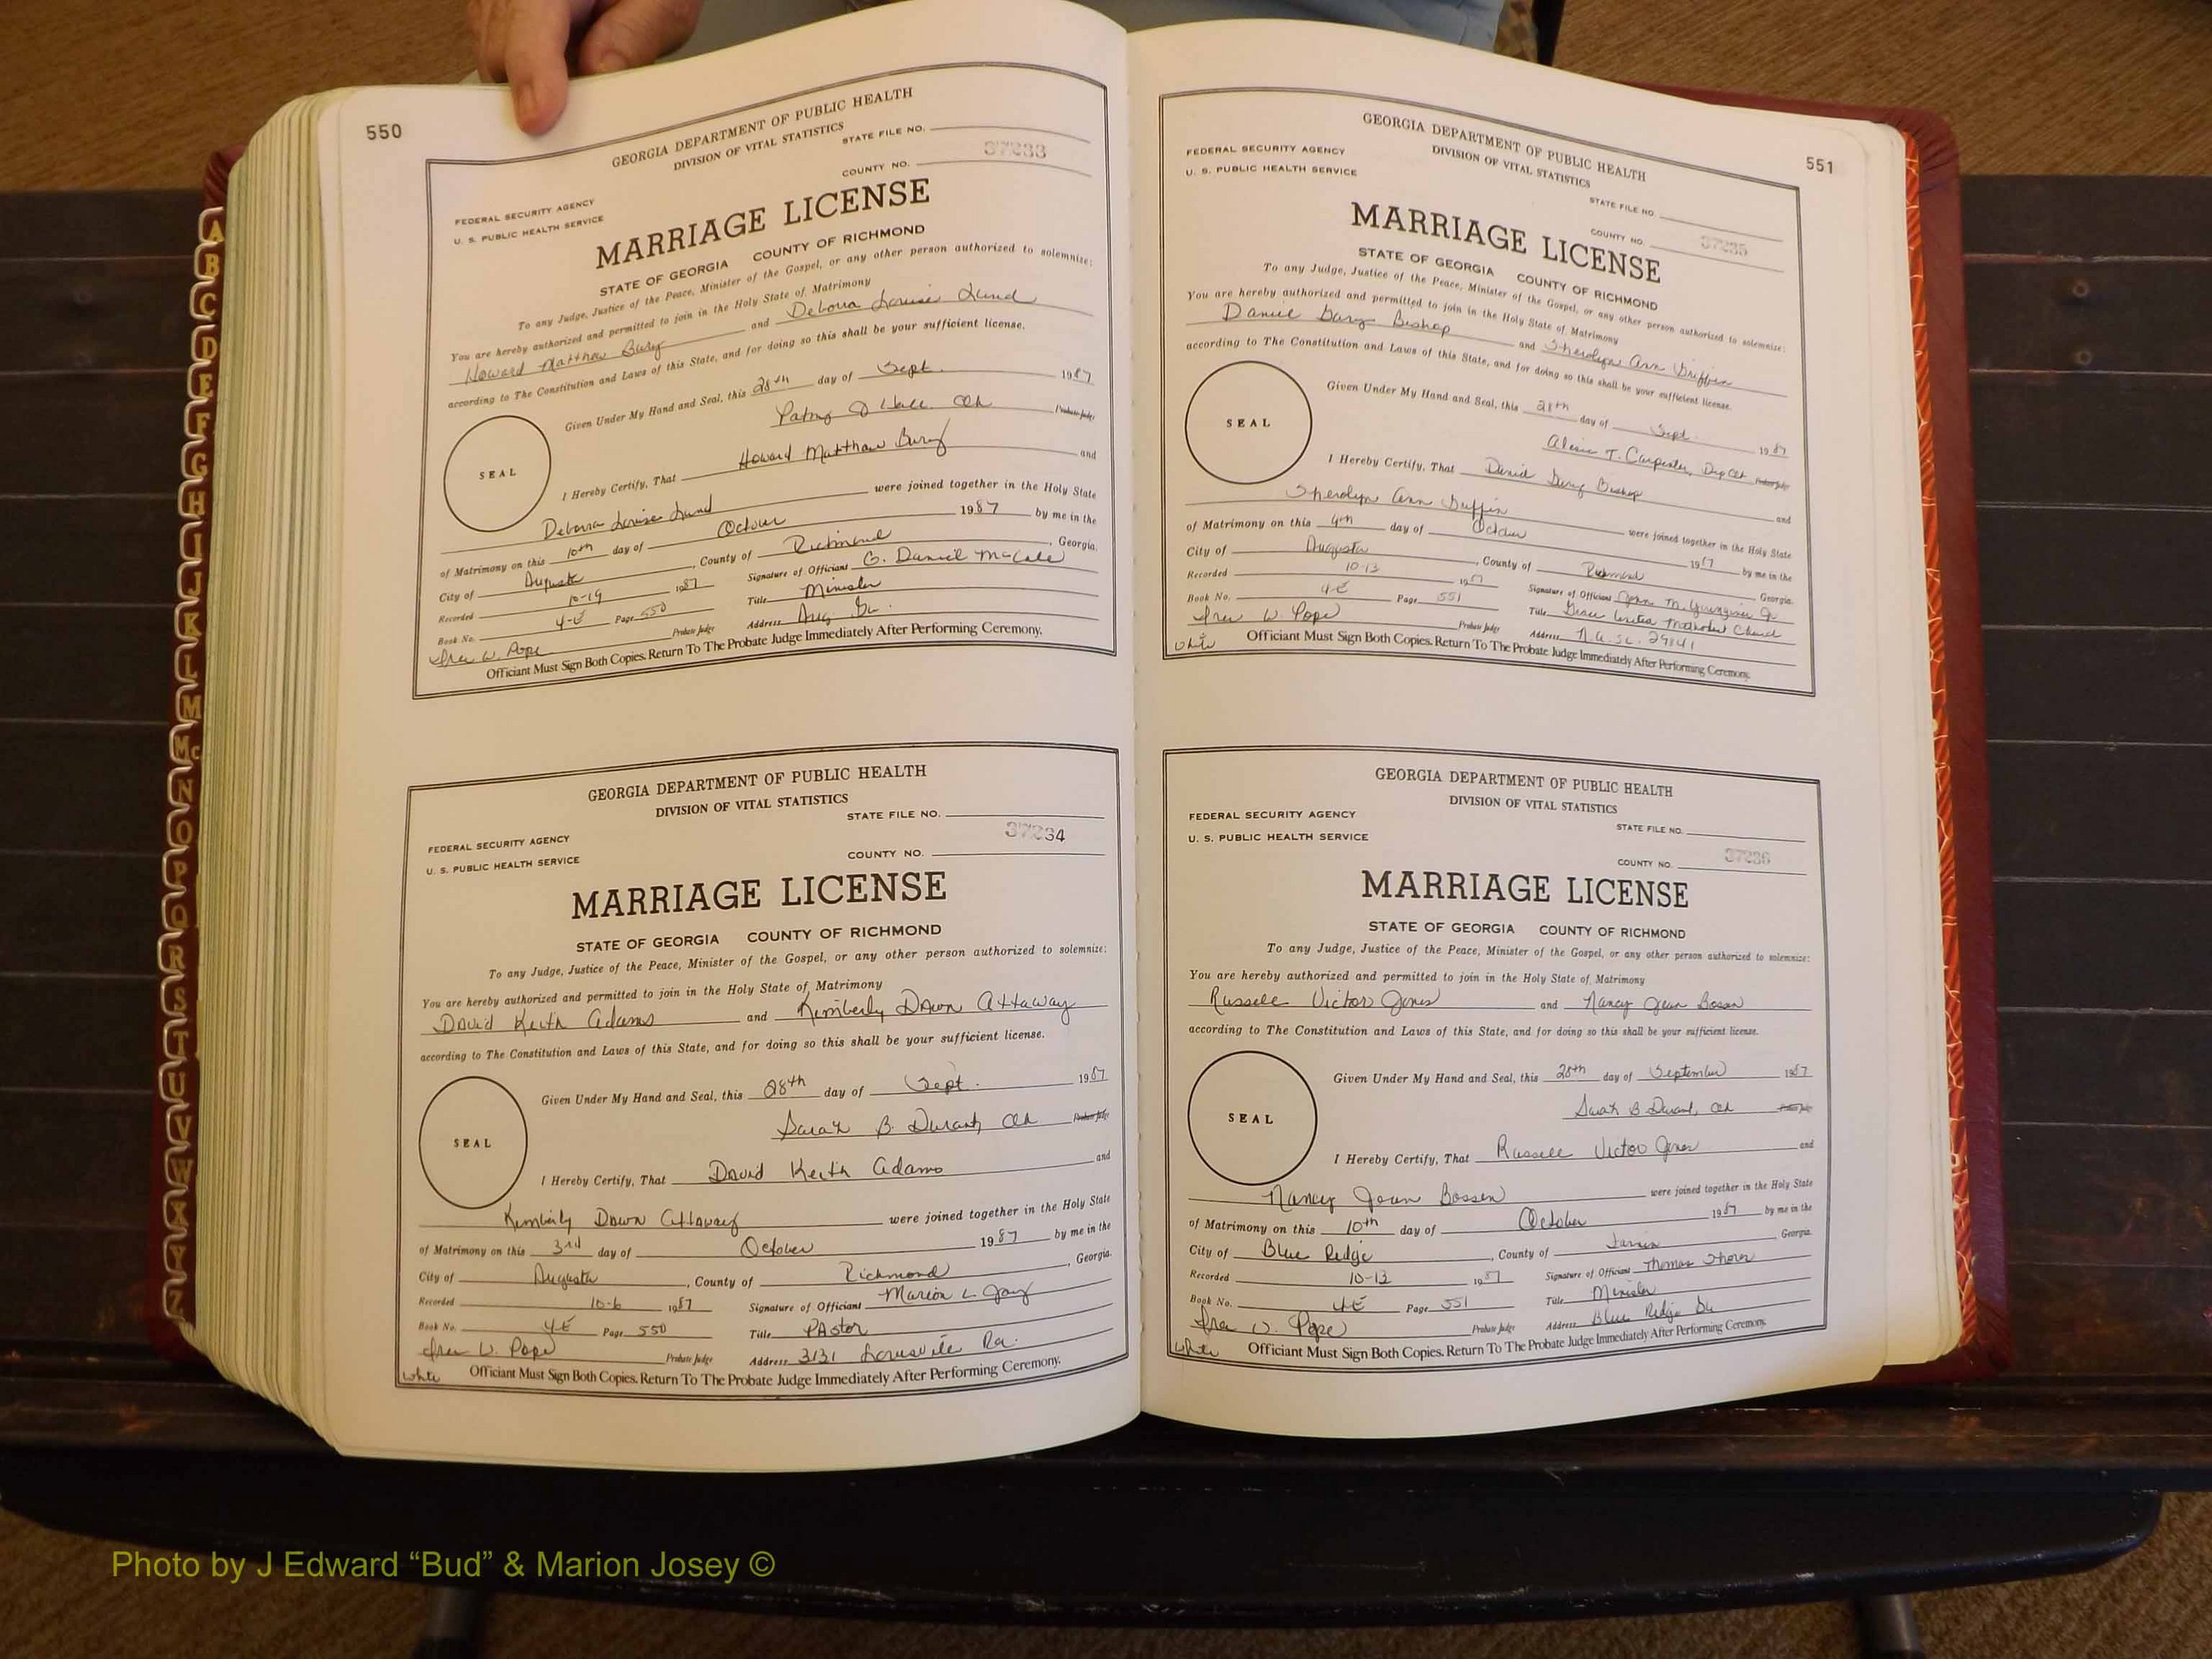 550
GEORGIA DEPARTMENT OF PUBLIC HEALTH
DIVISION OF VITAL STATISTICS
STATE FILE NO.
37233
COUNTY NO.
FEDERAL SECURITY AGENCY
U. S. PUBLIC HEALTH SERVICE
MARRIAGE LICENSE
STATE OF GEORGIA COUNTY OF RICHMOND
To any Judge, Justice of the Peace, Minister of the Gospel, or any other person authorized to solemnize:
You are hereby authorized and permitted to join in the Holy State of Matrimony
Howard Matthew and Debora Louise Lund
according to The Constitution and Laws of this State, and for doing so this shall be your sufficient license.
Given Under My Hand and Seal, this 28th day of Sept. 1987
Hall Clk Probate Judge
SEAL
I Hereby Certify, That Howard Matthew and
Debora Louise Lund were joined together in the Holy State
of Matrimony on this 10th day of October 1987 by me in the
City of Augusta, County of Richmond, Georgia.
Recorded 10-19 1987 Signature of Officiant G. Daniel McCabe
Book No. 4-E Page 550 Title Minister
W. Pope Probate Judge Address Aug. Ga.
Officiant Must Sign Both Copies. Return To The Probate Judge Immediately After Performing Ceremony.
GEORGIA DEPARTMENT OF PUBLIC HEALTH
DIVISION OF VITAL STATISTICS
STATE FILE NO.
37234
COUNTY NO.
FEDERAL SECURITY AGENCY
U. S. PUBLIC HEALTH SERVICE
MARRIAGE LICENSE
STATE OF GEORGIA COUNTY OF RICHMOND
To any Judge, Justice of the Peace, Minister of the Gospel, or any other person authorized to solemnize:
You are hereby authorized and permitted to join in the Holy State of Matrimony
David Keith Adams and Kimberly Dawn Attaway
according to The Constitution and Laws of this State, and for doing so this shall be your sufficient license.
Given Under My Hand and Seal, this 28th day of Sept. 1987
Sarah B. Durant, Clk Probate Judge
SEAL
I Hereby Certify, That David Keith Adams and
Kimberly Dawn Attaway were joined together in the Holy State
of Matrimony on this 3rd day of October 1987 by me in the
City of Augusta, County of Richmond, Georgia.
Recorded 10-6 1987 Signature of Officiant Marion L. Gay
Book No. 4E Page 550 Title PAstor
W. Pope Probate Judge Address 3131 Louisville Rd.
White
Officiant Must Sign Both Copies. Return To The Probate Judge Immediately After Performing Ceremony.
551
GEORGIA DEPARTMENT OF PUBLIC HEALTH
DIVISION OF VITAL STATISTICS
FEDERAL SECURITY AGENCY
U. S. PUBLIC HEALTH SERVICE
STATE FILE NO.
COUNTY NO. 37235
MARRIAGE LICENSE
STATE OF GEORGIA COUNTY OF RICHMOND
To any Judge, Justice of the Peace, Minister of the Gospel, or any other person authorized to solemnize:
You are hereby authorized and permitted to join in the Holy State of Matrimony
Daniel Gary Bishop and Sherolyn Ann Griffin
according to The Constitution and Laws of this State, and for doing so this shall be your sufficient license.
Given Under My Hand and Seal, this 28th day of Sept. 1987
T. Carpenter, Dep Clk Probate Judge
SEAL
I Hereby Certify, That Gary Bishop and
Sherolyn Ann Griffin were joined together in the Holy State
of Matrimony on this 4th day of October 1987 by me in the
City of Augusta, County of Richmond, Georgia.
Recorded 10-13 1987 Signature of Officiant John M. Younginer Jr.
Book No. 4-E Page 551 Title Grace United Methodist Church
W. Pope Probate Judge Address N.A. SC. 29841
White
Officiant Must Sign Both Copies. Return To The Probate Judge Immediately After Performing Ceremony.
GEORGIA DEPARTMENT OF PUBLIC HEALTH
DIVISION OF VITAL STATISTICS
FEDERAL SECURITY AGENCY
U. S. PUBLIC HEALTH SERVICE
STATE FILE NO.
COUNTY NO. 37236
MARRIAGE LICENSE
STATE OF GEORGIA COUNTY OF RICHMOND
To any Judge, Justice of the Peace, Minister of the Gospel, or any other person authorized to solemnize:
You are hereby authorized and permitted to join in the Holy State of Matrimony
Russell Victor Jones and Nancy Jean Bossen
according to The Constitution and Laws of this State, and for doing so this shall be your sufficient license.
Given Under My Hand and Seal, this 28th day of September 1987
Sarah B Durant, Clk Probate Judge
SEAL
I Hereby Certify, That Russell Victor Jones and
Nancy Jean Bossen were joined together in the Holy State
of Matrimony on this 10th day of October 1987 by me in the
City of Blue Ridge, County of Georgia.
Recorded 10-13 1987 Signature of Officiant Thomas
Book No. 4E Page 551 Title Minister
W. Pope Probate Judge Address Blue Ridge Ga
White
Officiant Must Sign Both Copies. Return To The Probate Judge Immediately After Performing Ceremony.
A
B
C
D
E
F
G
H
I
J
K
L
M
Mc
N
O
P
Q
R
S
T
U
V
W
X
Y
Z
Photo by J Edward “Bud” & Marion Josey ©